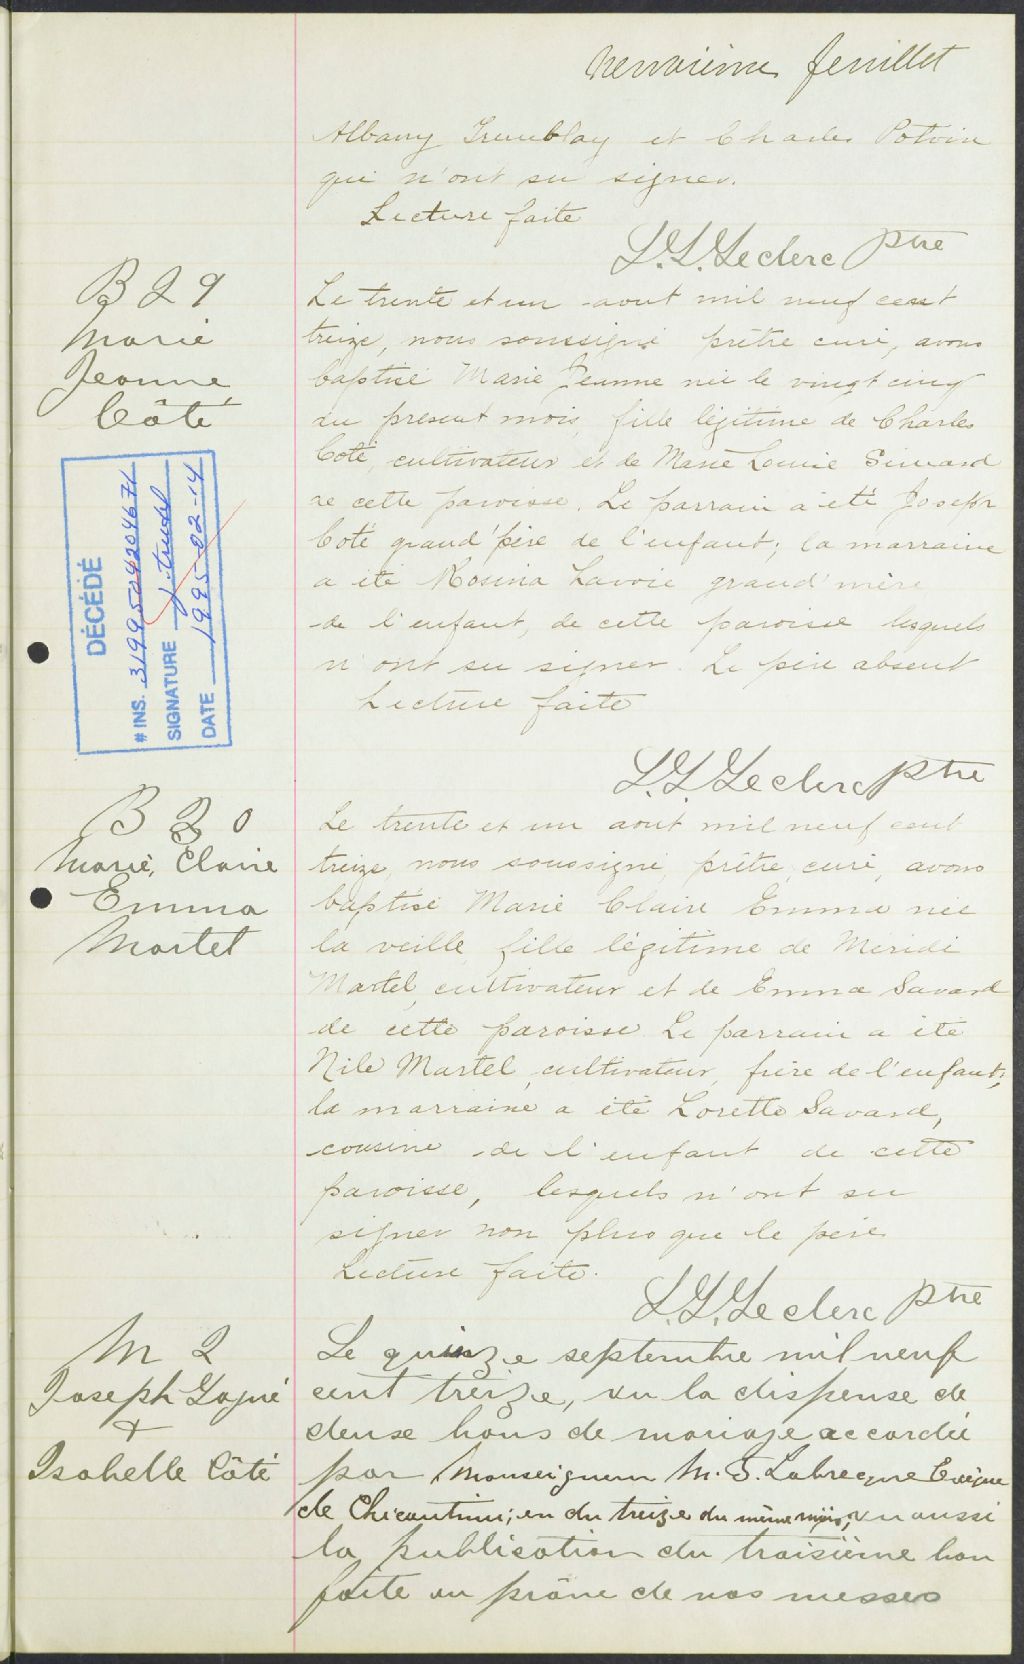 neuvième feuillet
Albany Tremblay et Charles Potvin
qui n'ont su signer.
Lecture faite
L. L. Leclerc ptre
B 29
Marie
Jeanne
Côté
Le trente et un aout mil neuf cent
treize, nous soussigné prêtre curé, avons
baptisé Marie Jeanne née le vingt cinq
du présent mois, fille légitime de Charles
Coté, cultivateur et de Marie Louise Simard
de cette paroisse. Le parrain a été Joseph
Coté grand'père de l'enfant; la marraine
a été Rosina Lavoie grand'mère
de l'enfant, de cette paroisse lesquels
n'ont su signer. Le père absent
Lecture faite
L. L. Leclerc ptre
DÉCÉDÉ
# INS. 3199504204671
SIGNATURE J. Trudel
DATE 1995-02-14
B 30
Marie, Claire
Emma
Martel
Le trente et un août mil neuf cent
treize, nous soussigné, prêtre, curé, avons
baptisé Marie Claire Emma née
la veille, fille légitime de Méridé
Martel, cultivateur et de Emma Savard
de cette paroisse Le parrain a été
Nile Martel, cultivateur, frère de l'enfant;
la marraine a été Lorette Savard,
cousine de l'enfant de cette
paroisse, lesquels n'ont su
signer non plus que le père
Lecture faite.
L. L. Leclerc ptre
M 2
Joseph Gagné
+
Isabelle Côté
Le quinze septembre mil neuf
cent treize, vu la dispense de
deuse bans de mariage accordée
par Monseigneur M. T. Labrecque Evêque
de Chicoutimi; en du treize du même mois, vu aussi
la publication du troisième ban
faite au prône de nos messes